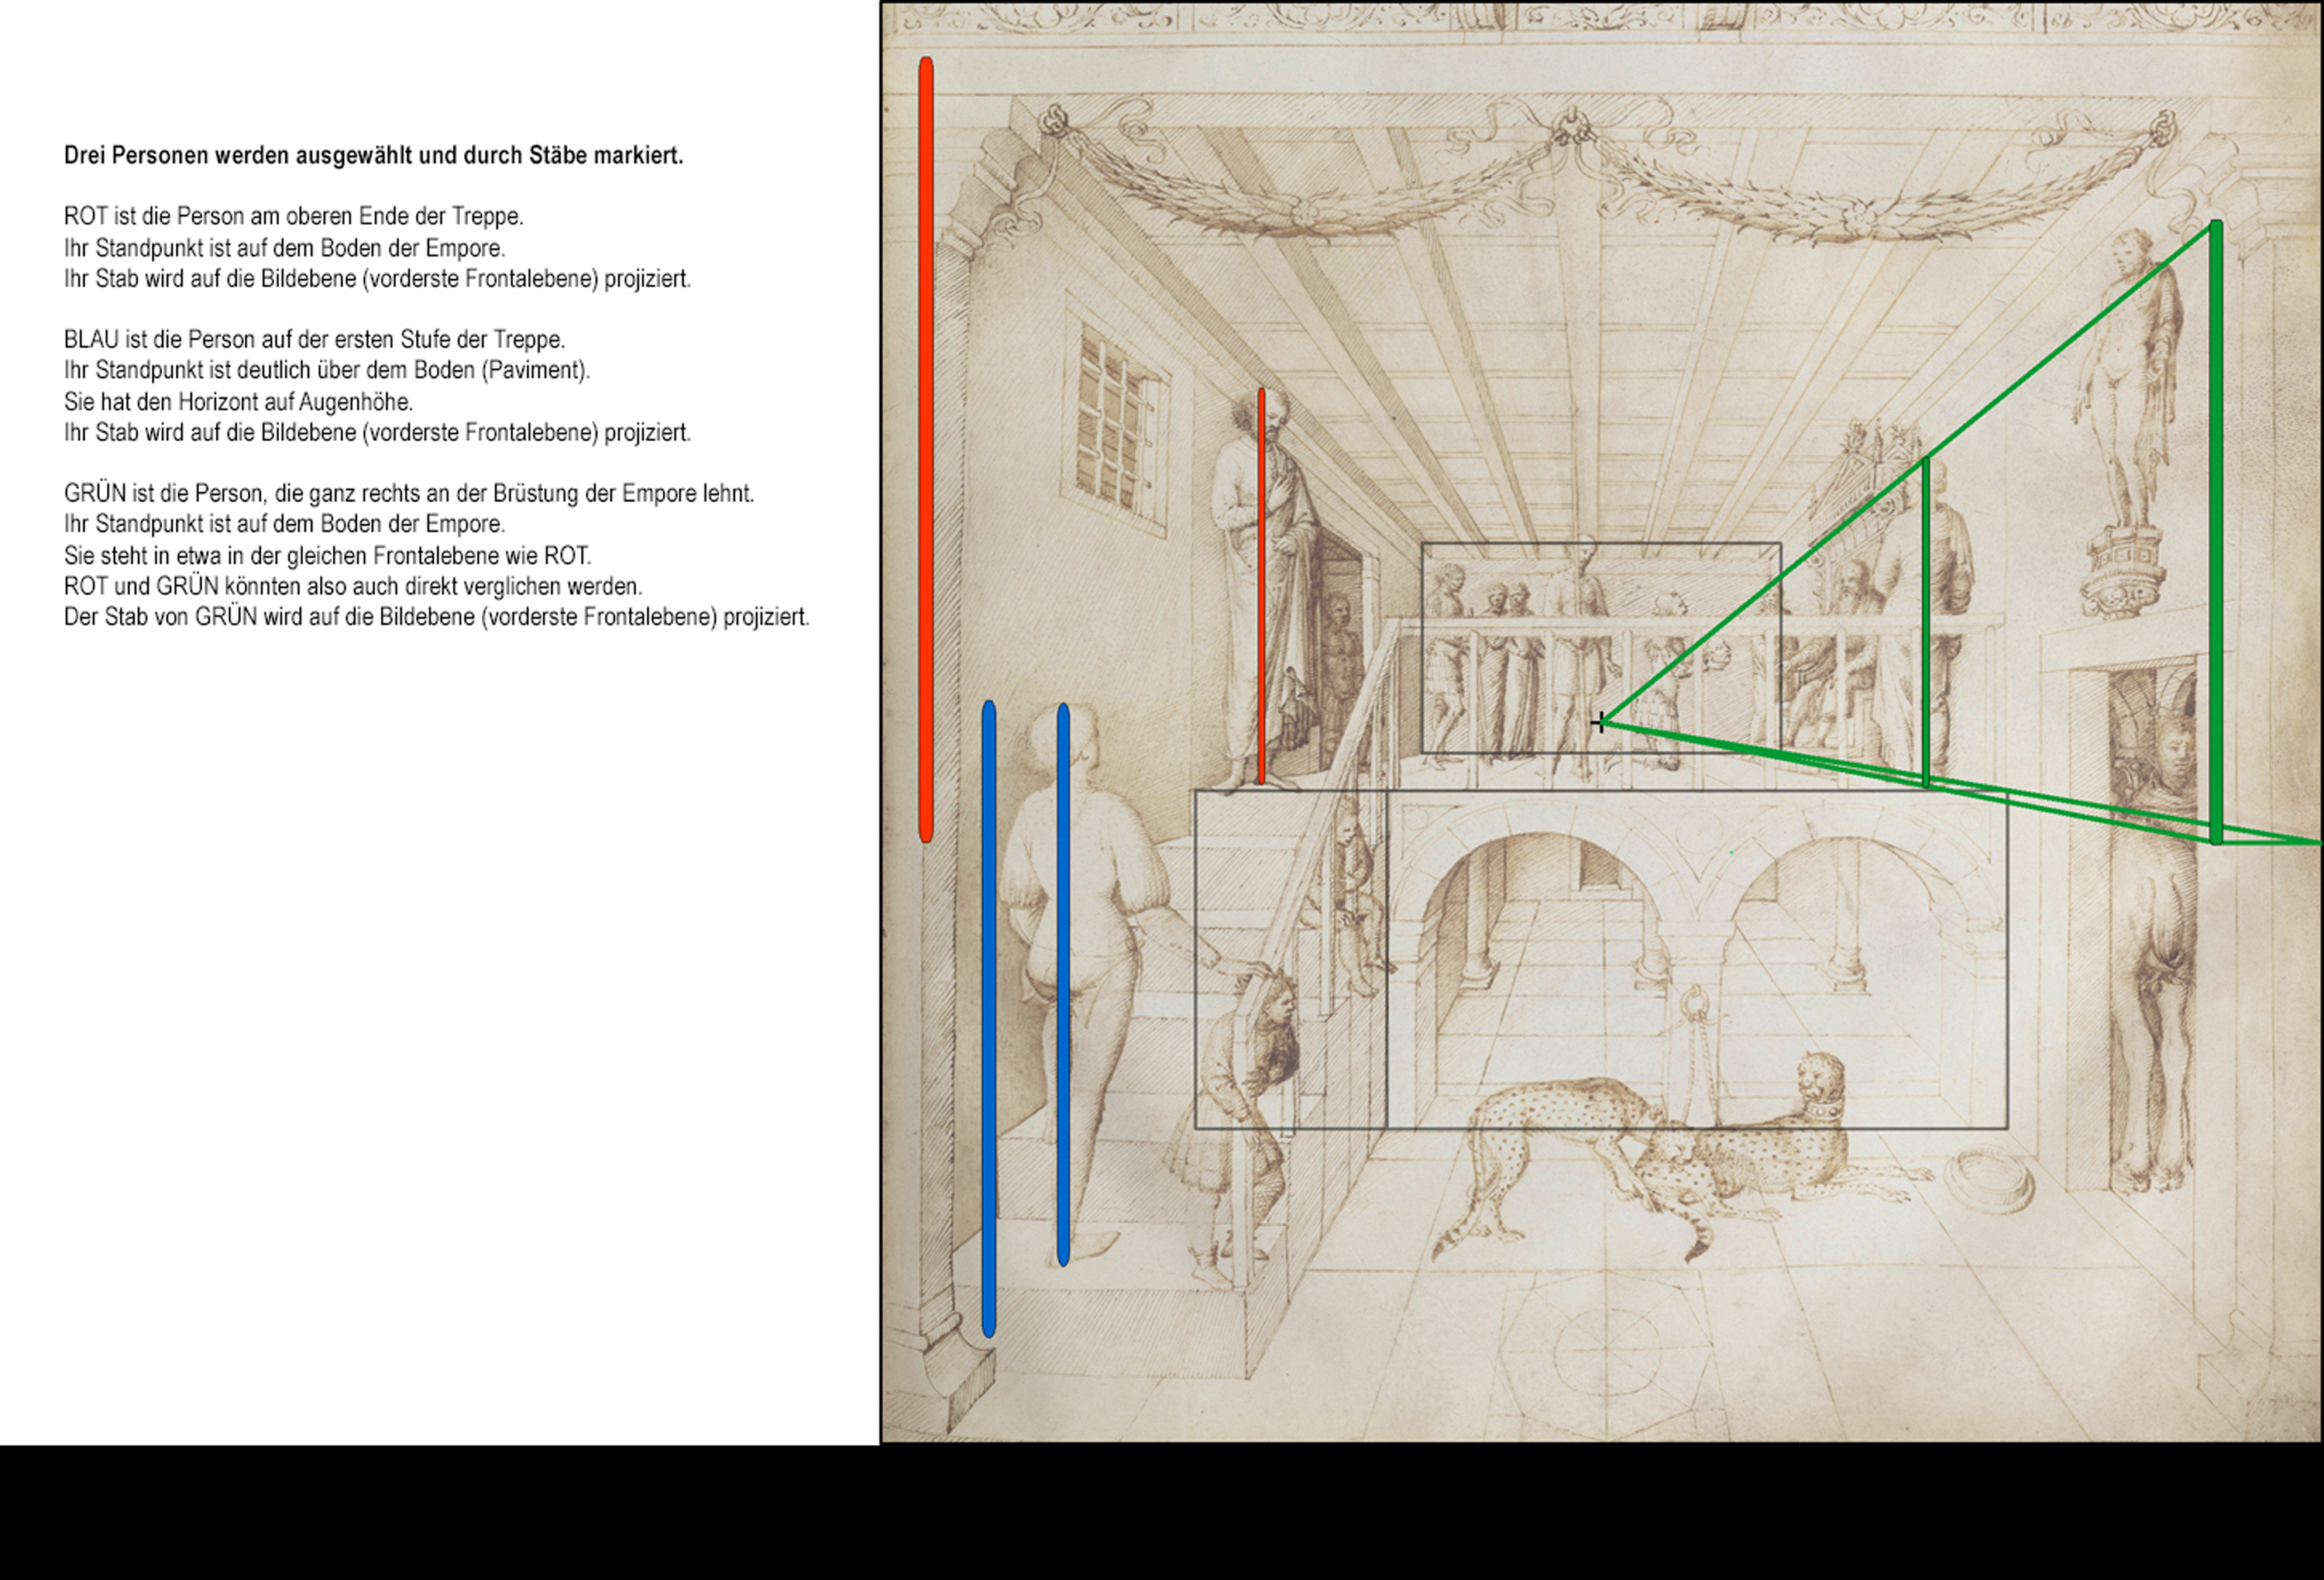 Drei Personen werden ausgewählt und durch Stäbe markiert.
ROT ist die Person am oberen Ende der Treppe.
Ihr Standpunkt ist auf dem Boden der Empore.
Ihr Stab wird auf die Bildebene (vorderste Frontalebene) projiziert.
BLAU ist die Person auf der ersten Stufe der Treppe.
Ihr Standpunkt ist deutlich über dem Boden (Paviment).
Sie hat den Horizont auf Augenhöhe.
Ihr Stab wird auf die Bildebene (vorderste Frontalebene) projiziert.
GRÜN ist die Person, die ganz rechts an der Brüstung der Empore lehnt.
Ihr Standpunkt ist auf dem Boden der Empore.
Sie steht in etwa in der gleichen Frontalebene wie ROT.
ROT und GRÜN könnten also auch direkt verglichen werden.
Der Stab von GRÜN wird auf die Bildebene (vorderste Frontalebene) projiziert.